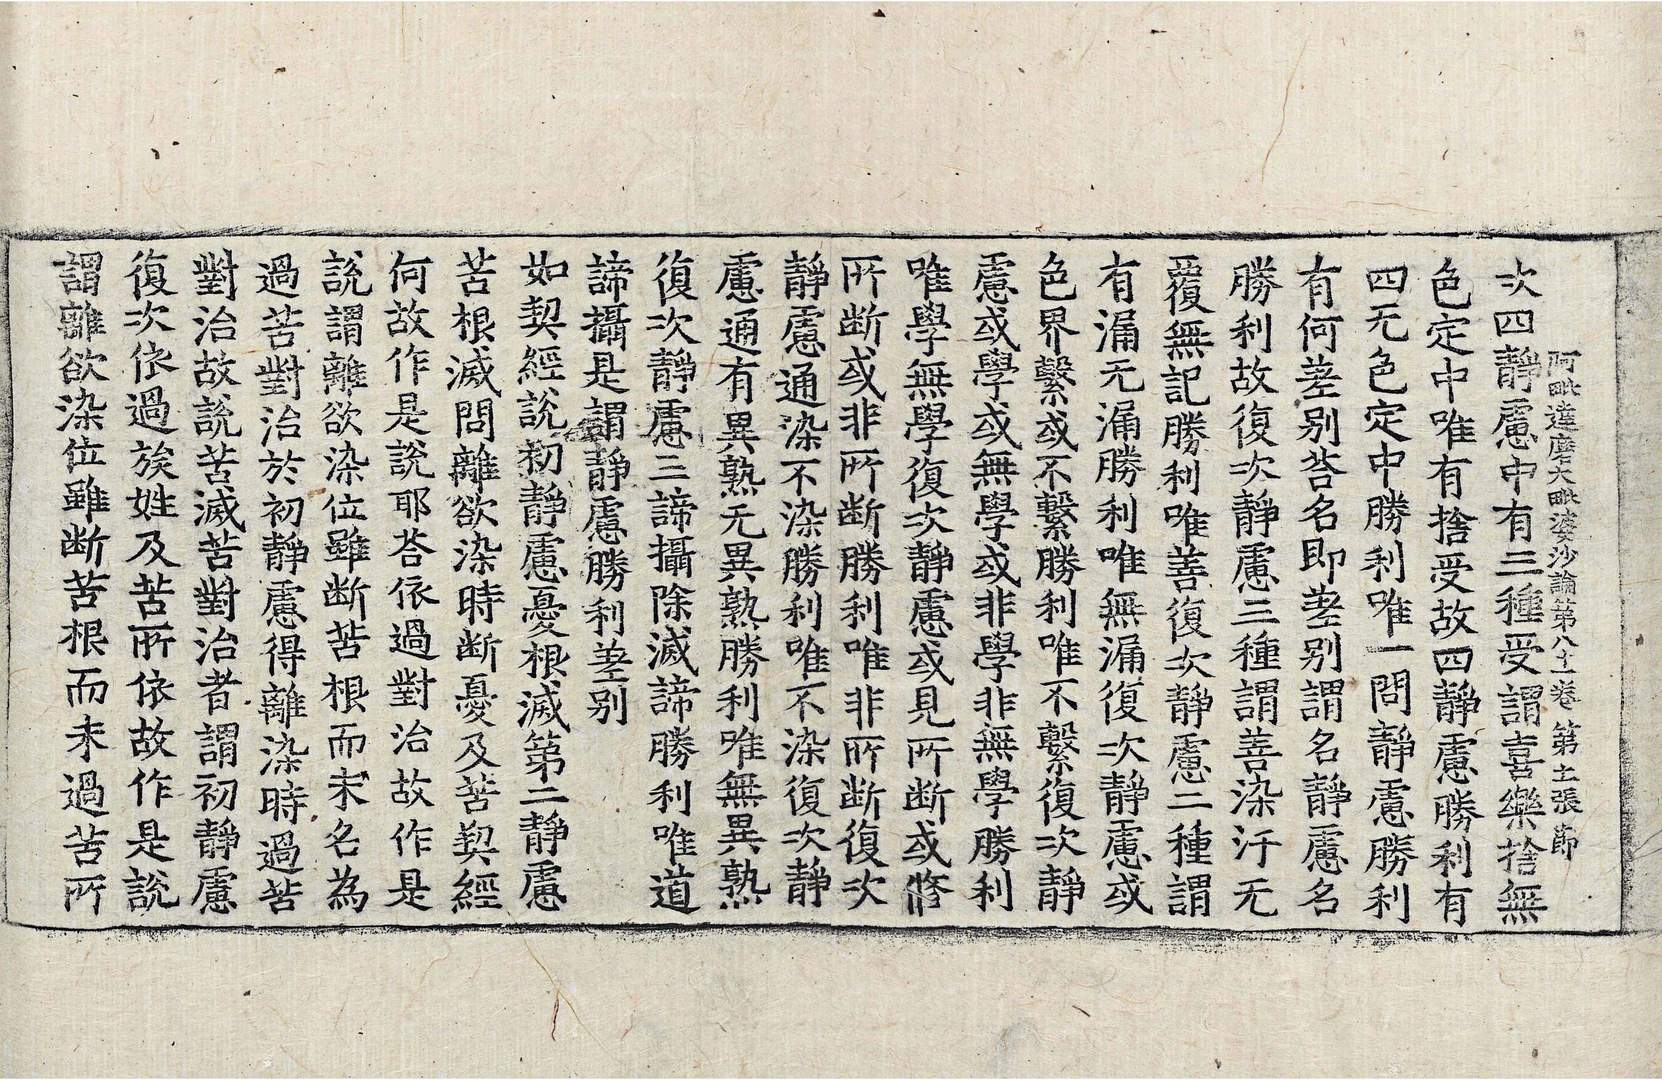 阿毗達磨大毗婆沙論第八十一卷 第十二張 節
次四靜慮中有三種受謂喜樂捨無
色定中唯有捨受故四靜慮勝利有
四无色定中勝利唯一問靜慮勝利
有何差别荅名即差别謂名靜慮名
勝利故復次靜慮三種謂善染汙无
覆無記勝利唯善復次靜慮二種謂
有漏无漏勝利唯無漏復次靜慮或
色界繫或不繫勝利唯不繫復次靜
慮或學或無學或非學非無學勝利
唯學無學復次靜慮或見所断或脩
所断或非所断勝利唯非所断復次
靜慮通染不染勝利唯不染復次靜
慮通有異熟无異熟勝利唯無異熟
復次靜慮三諦攝除滅諦勝利唯道
諦攝是謂靜慮勝利差别
如契經說初靜慮憂根滅第二靜慮
苦根滅問離欲染時断憂及苦契經
何故作是說耶荅依過對治故作是
說謂離欲染位雖断苦根而未名為
過苦對治於初靜慮得離染時過苦
對治故說苦滅苦對治者謂初靜慮
復次依過族姓及苦所依故作是說
謂離欲染位雖断苦根而未過苦所